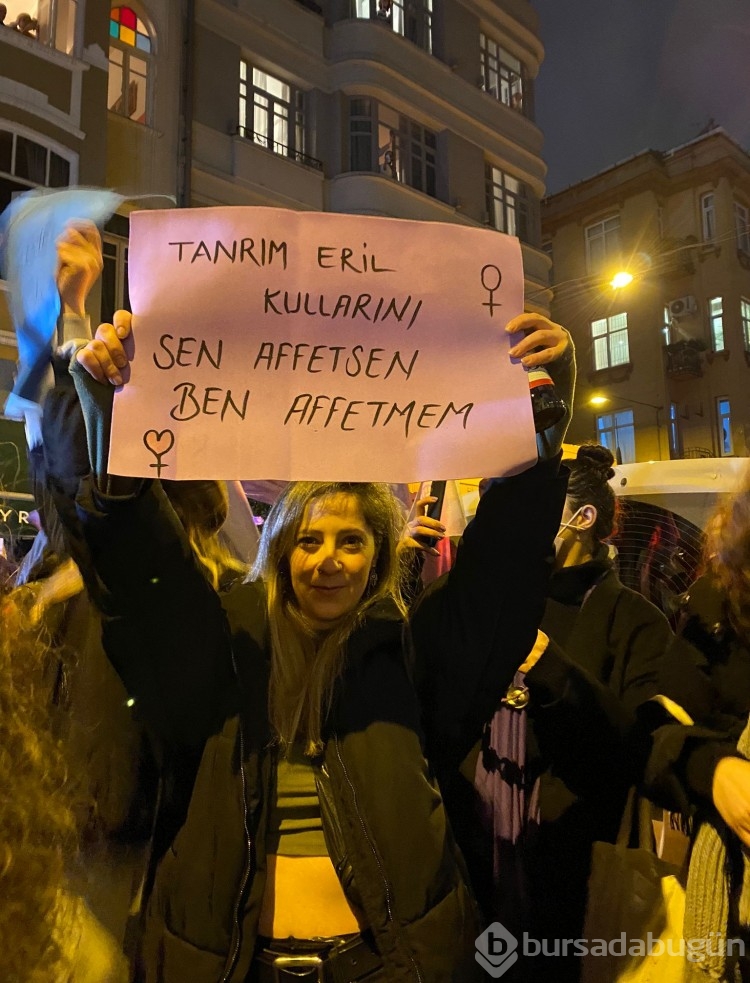 TANRIM ERİL
KULLARINI
SEN AFFETSEN
BEN AFFETMEM
bursadabugün